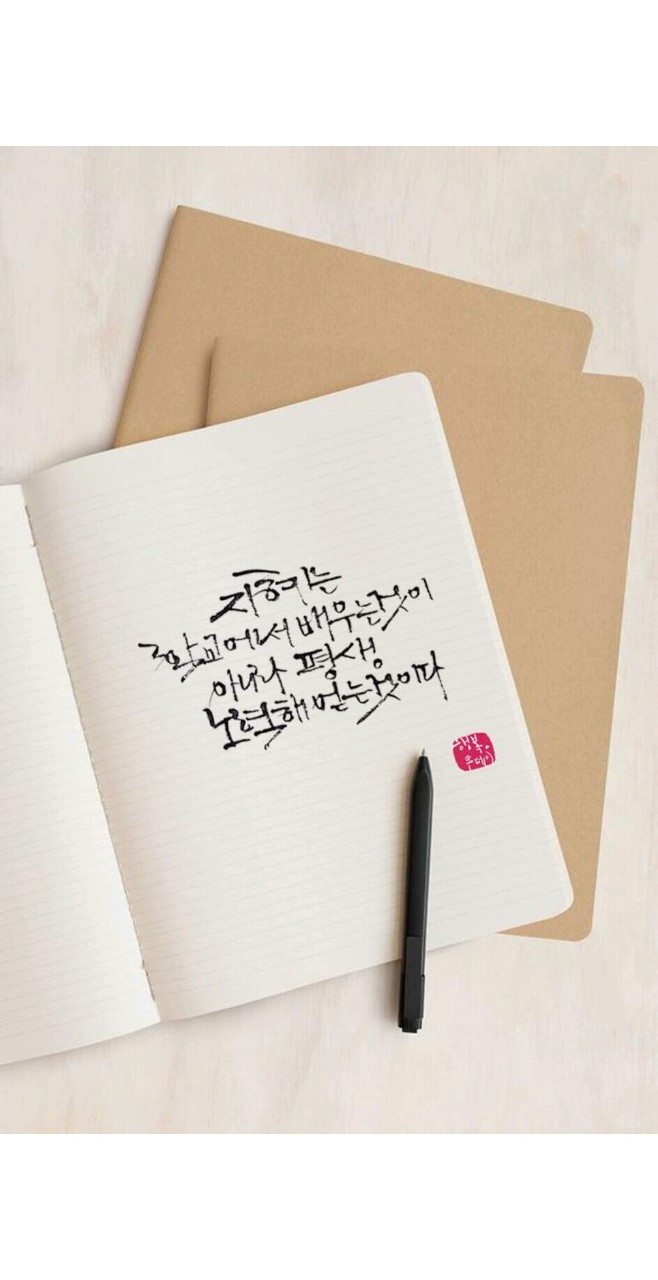 지혜는
학교에서 배우는것이
아니라 평생
노력해 얻는것이다
행복.
투데이